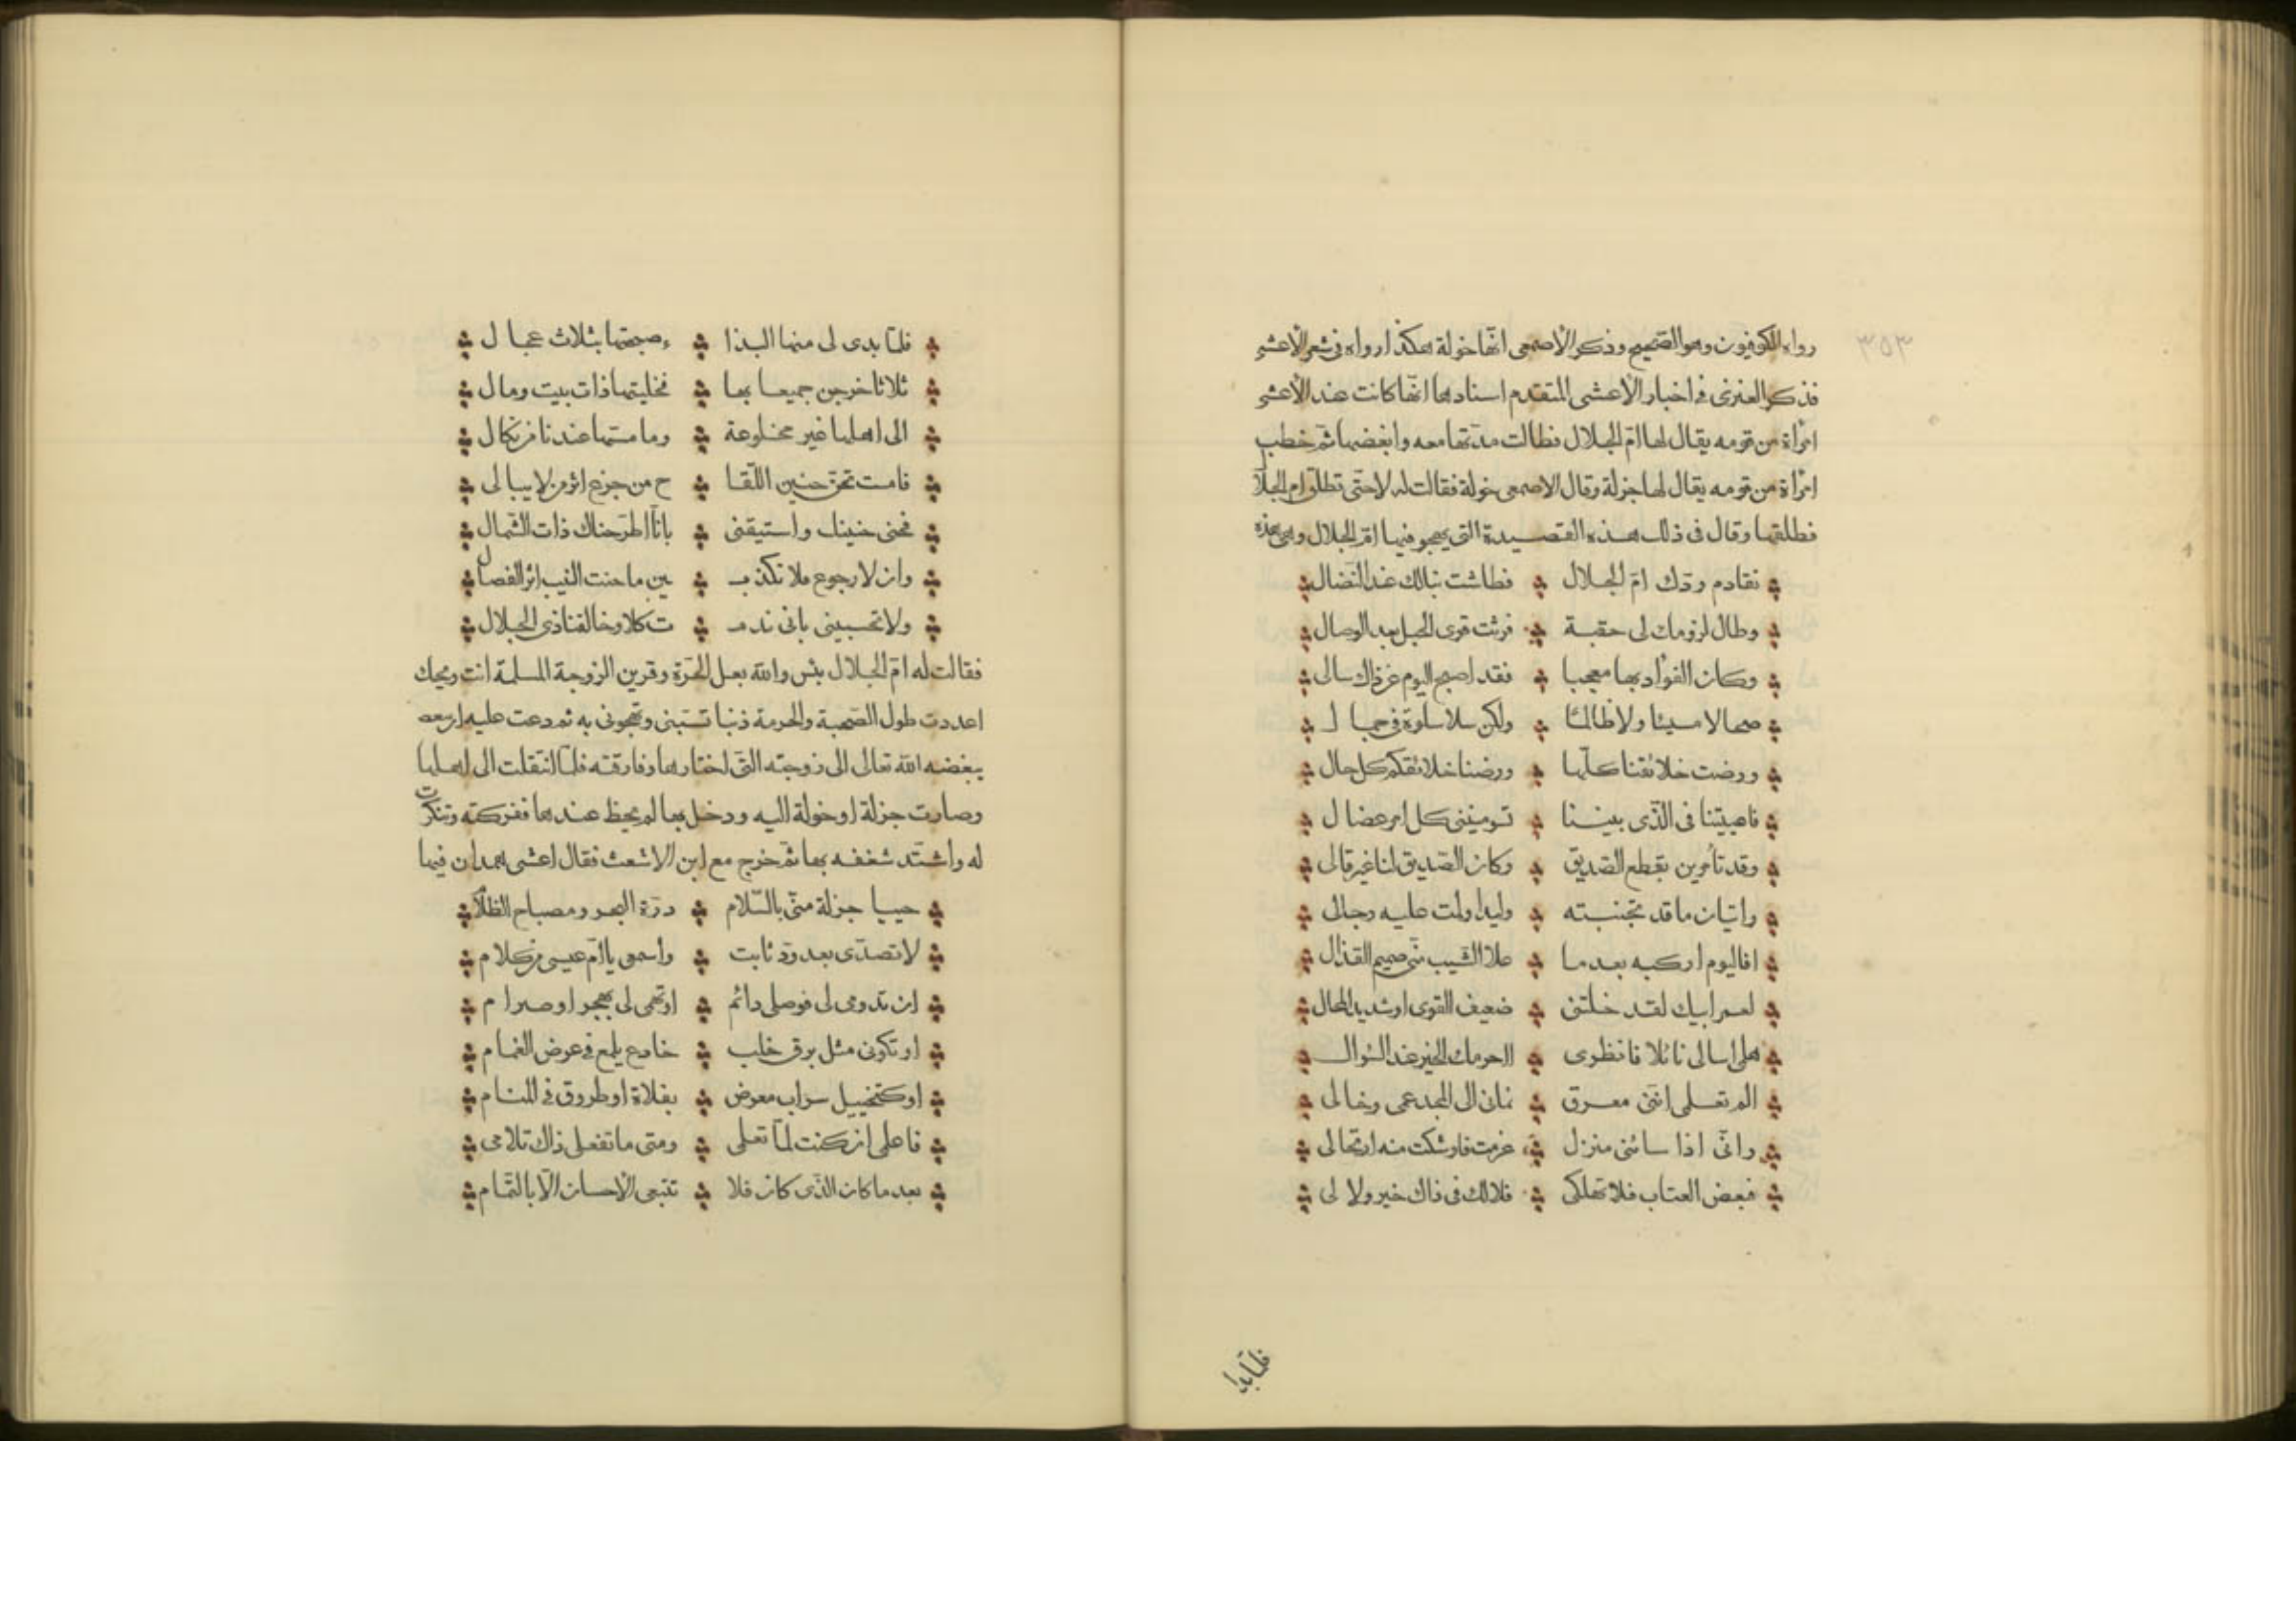 ٣٥٣
رواه الكوفيون وهو الصحيح وذكر الأصمعى انها خولة هكذا رواه فى شعر الأعشى
فذكر العنزى فى اخبار الأعشى المتقدم اسنادها انها كانت عند الأعشى
امرأة من قومه يقال لها ام الجلال فطالت مدتها معه وابغضها ثم خطب
امرأة من قومه يقال لها جزلة وقال الاصمعى خولة فقالت له لا حتى تطلق ام الجلال
فطلقها وقال فى ذلك هذه القصيدة التى يهجو فيها ام الجلال وهى هذه
تقادم ودك ام الجلال فطاشت نبالك عند النضال
وطال لزومك لى حقبة فرثت قوى الحبل بعد الوصال
وكان الفؤاد بها معجبا فقد اصبح اليوم عن ذاك سالى
صحا لا مسيئا ولا ظالمـا ولكن سلا سلوة فى جمال
ورضت خلائقنا كلها ورضنا خلائقكم كل حال
فاعييتنا فى الذى بيننا تسومينى كل امر عضال
وقد تأمرين بقطع الصديق وكان الصديق لنا غير قالى
واتيان ما قد تجنبته وليدا ولمت عليه رجالى
افاليوم اركبه بعدما علا الشيب منى صميم القذال
لعمر ابيك لقد خلتنى ضعيف القوى او شديد المحال
هلمى اسالى نائلا فانظرى ااحرمك الخير عند السؤال
الم تعلمى اننى معرق نمانى الى المجد عمى وخالى
وانى اذا سائنى منزل عزمت فاوشكت منه ارتحالى
فبعض العتاب فلا تهلكى فلا لك فى ذاك خير ولا لى
فلما بدا
فلما بدى لى منها البذا ء صبحتها بثلاث عجال
ثلاثا خرجن جميعا بها فخليتها ذات بيت ومال
الى اهلها غير مخلوعة وما مستها عندنا من نكال
فامست تحن حنين اللقا ح من جزع اثر من لا يبالى
فحنى حنينك واستيقنى بانا اطرحناك ذات الشمال
وان لا رجوع فلا تكذبـ ين ما حنت النيب اثر الفصال
ولا تحسبينى بانى ندمـ ت كلا وخالقنا ذى الجلال
فقالت له ام الجلال بئس والله بعل الحرة وقرين الزوجة المسلمة انت ويحك
اعددت طول الصحبة والحرمة ذنبا تسبنى وتهجونى به ثم دعت عليه ان
يبغضه الله تعالى الى زوجته التى اختارها وفارقته فلما انتقلت الى اهلها
وصارت جزلة او خولة اليه ودخل بها لم يحظ عندها ففركته وتنكرت
له واشتد شغفه بها ثم خرج مع ابن الاشعث فقال اعشى همدان فيها
حييا جزلة منى بالسلام درة البحر ومصباح الظلام
لا تصدى بعد ود ثابت واسمعى يا ام عيسى من كلام
ان تدومى لى فوصلى دائم او تهمى لى بهجر او صرام
او تكونى مثل برق خلب خادع يلمع فى عرض الغمام
او كتخييل سراب معرض بفلاة او طروق فى المنام
فاعلمى ان كنت لما تعلمى ومتى ما تفعلى ذاك تلامى
بعد ما كان الذى كان فلا تتبعى الاحسان الا بالتمام